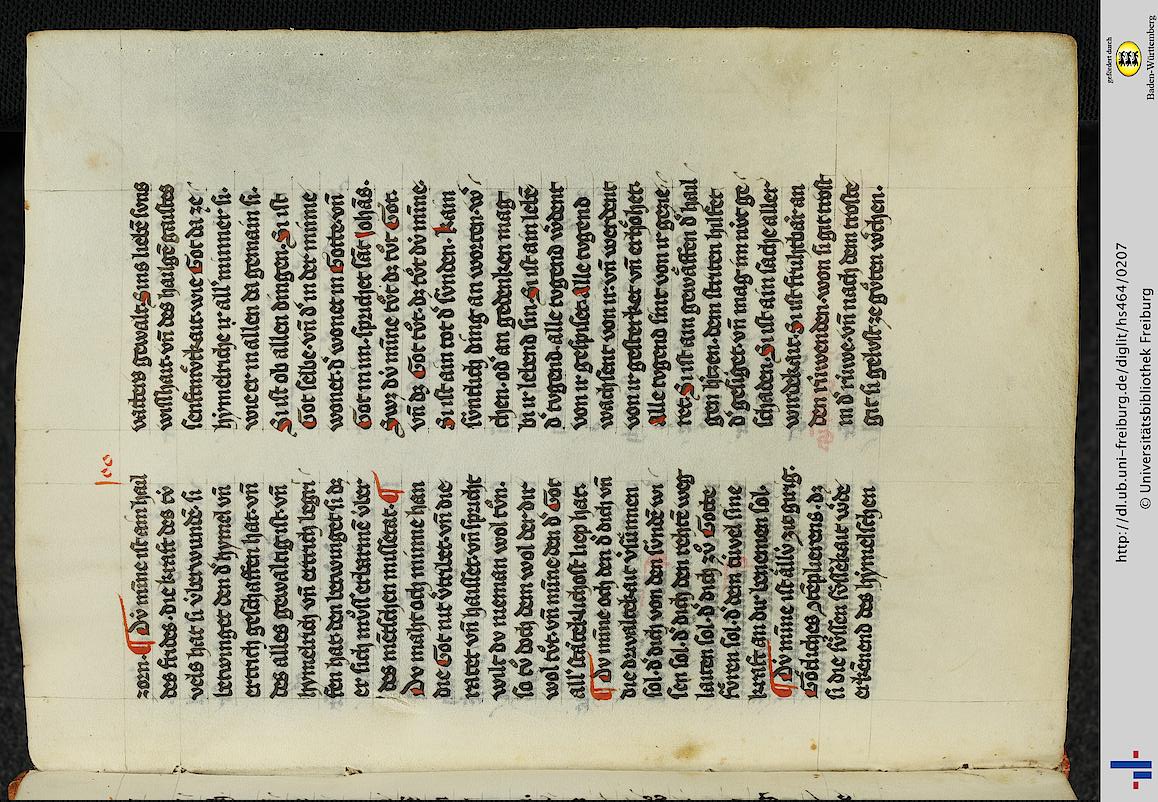 Leo
zorn. ¶ Dv minne ist ain hail
des frides. die kraft des tv́
vels hat si v́berwundē. si
betwinget den d' hymel vn̄
ertrich geschaffen hat. vn̄
des alles gewaltig ist. vn̄
hymelrich vn̄ ertrich begri
fen hat. den betwinget si dc
er sich mv̊ss erbarmē v́ber
des mēschen missetat. ¶
Dv maht och minne han
die Got nv́t verbiet. vn̄ die
ratet vn̄ haisset. vn̄ spricht
wilt dv nieman wol tv̊n.
so tv̊ doch dem wol der dir
wol tv̊t. vn̄ minne den d' Got
all' sicheklichost liep hat.
¶ Dv minne och den d' dich vn̄
die dervalrekait v́n̄innen
sol. d' dich von den sv́ndē wi
sen sol. d' dich den rehtē weg
laiten sol. d' dich zv̊ Gotte
fv̊ren sol. d' den tiuvel sine
kraft an dir benemen sol.
¶ Dv minne ist allv́ zwgirig.
Götliches
si die sv́ssen sv́ssekait wid'e
erkēnend des hymelschen
vatters gewalt. Sins liebē sons
wishait. vn̄ des hailgē gaistes
senftmv̊tkait. wie Got da ze
hymelriche ir all' minner si.
wie er in allen da gemain si.
Si ist ob allen dingen. Si ist
Got selbe. vn̄ d' in der minne
wonet. d' wonet in Gotte. vn̄
Got in im. sprichet sāt Johās.
Swc dv minne tv̊t dc tv̊t Got.
vn̄ dc Got tv̊t. dc tv̊t dv mine.
Si ist ain tot d' sv́nden. kain
sv́ntlich ding an worten. w'
chen. od' an gedenken mag
bi ir lebend sin. Si ist ain lebē
d' tvgend. alle tvgend w'dent
von ir gespiset. Alle tvgend
wachsent von ir. vn̄ werdent
von ir gesterket vn̄ erhöhet.
Alle tvgend sint von ir gezie
ret. Si ist ain gewäffen d' hail
gen hizen. dem striten hilfet
d' gesiget. vn̄ mag im niut ge
schaden. Si ist ain sache aller
wirdekait. Si ist fruhtbär an
den riuwenden. won si git trost
in d' riuwe. vn̄ nach dem troste
git si gelust ze gv̊ten w'chen.
gefördert durch
Baden-Württemberg
http://dl.ub.uni-freiburg.de/diglit/hs464/0207
© Universitätsbibliothek Freiburg